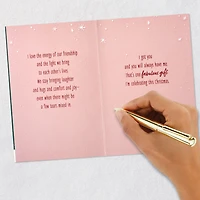 I love the energy of our friendship
and the light we bring
to each other's lives.
We stay bringing laughter
and hugs and comfort and joy–
even when there might be
a few tears mixed in.
I got you
and you will always have me.
That's one fabulous gift
I'm celebrating this Christmas.